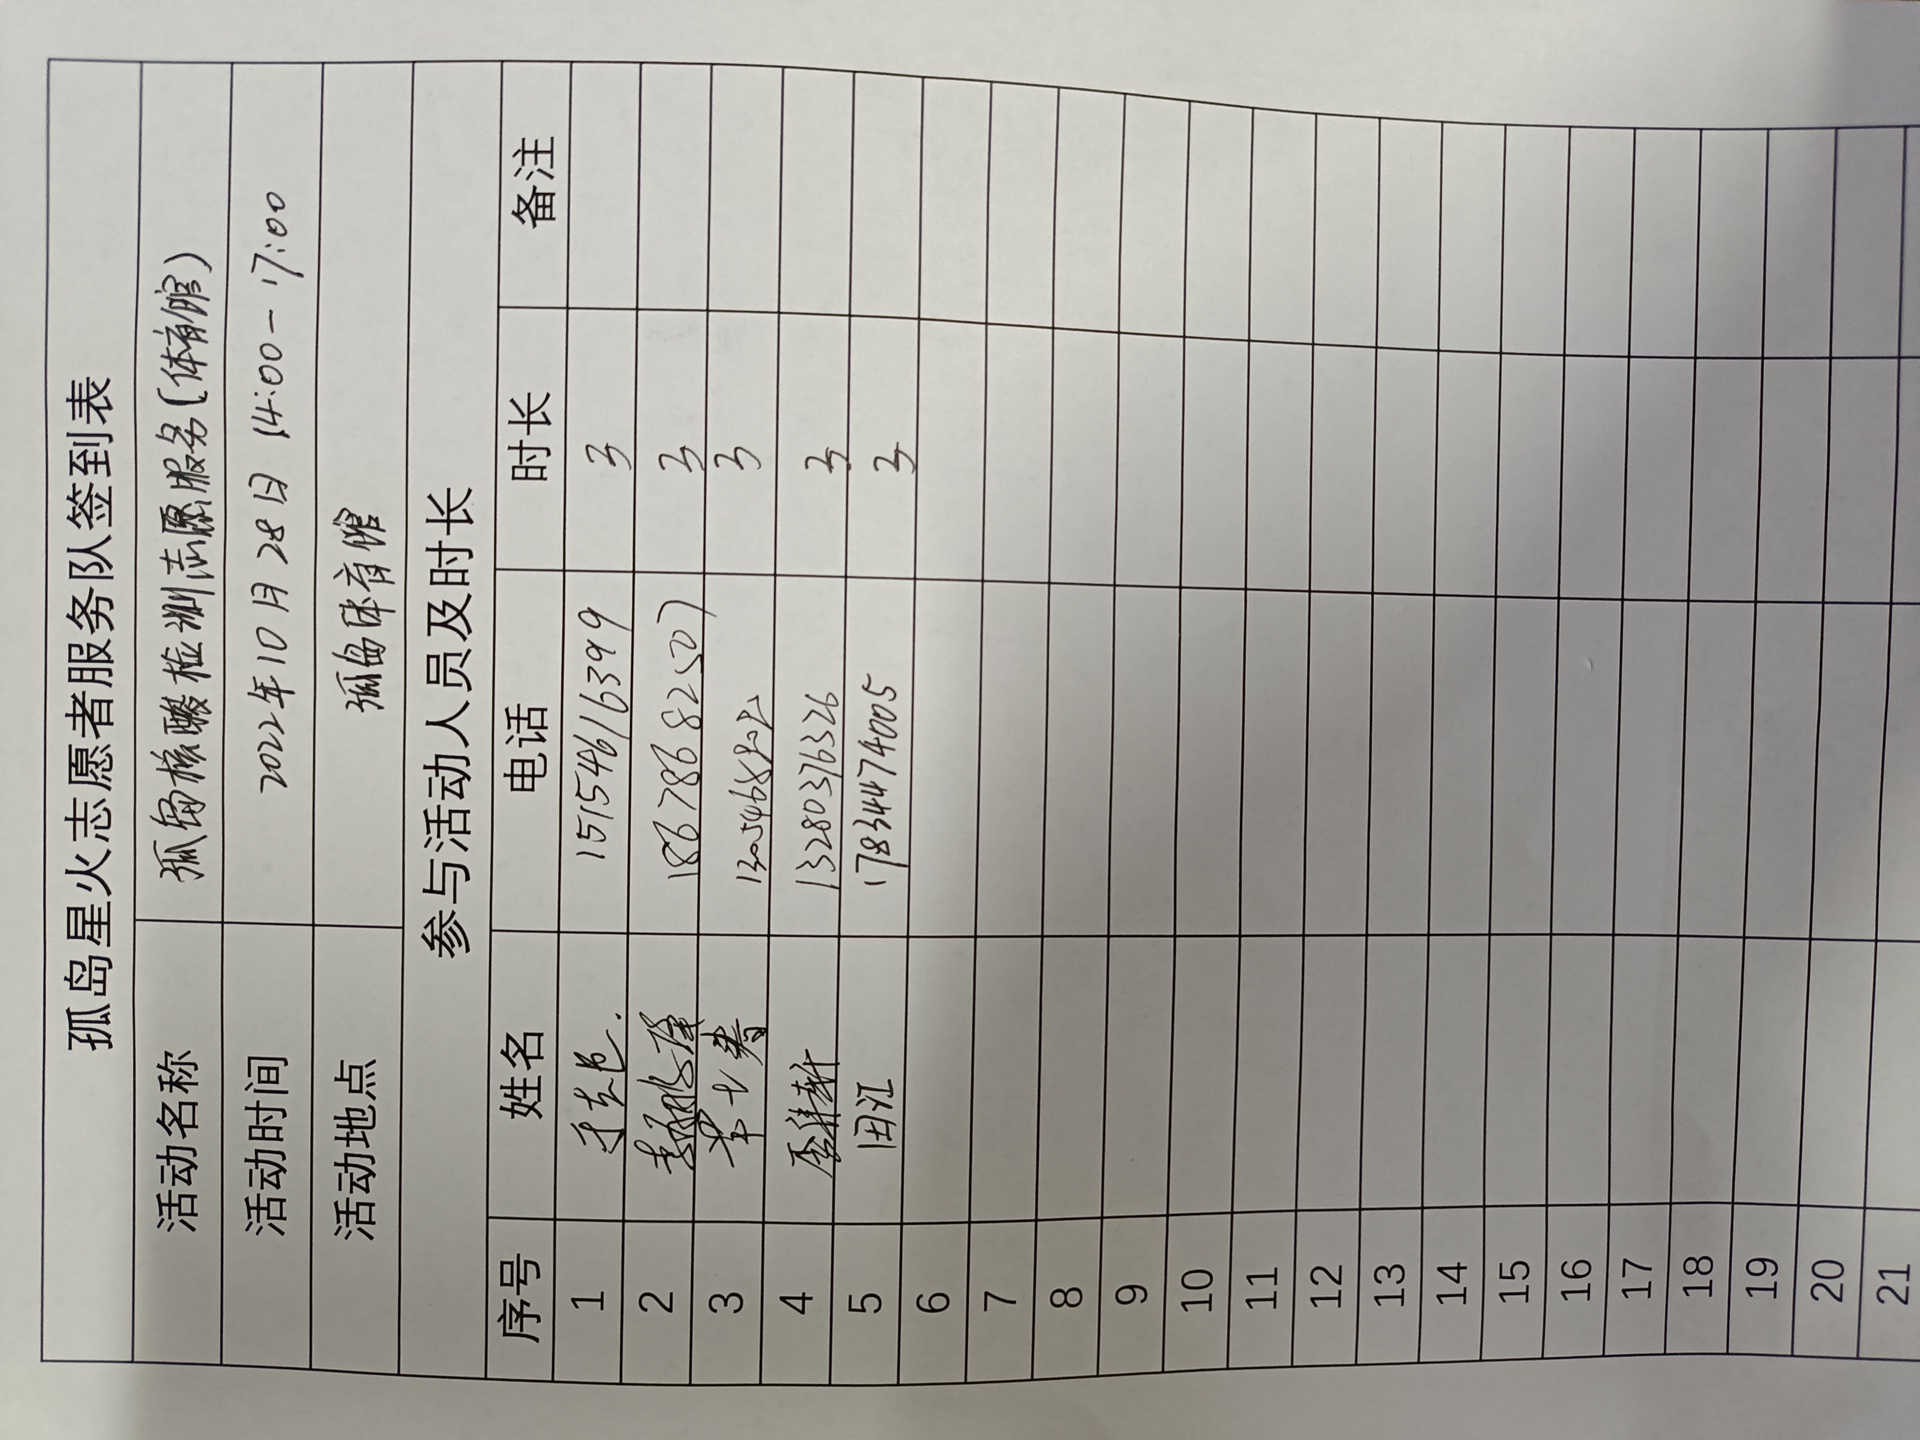 孤岛星火志愿者服务队签到表
活动名称 孤岛核酸检测志愿服务(体育馆)
活动时间 2022年10月28日 14:00-17:00
活动地点 孤岛体育馆
参与活动人员及时长
序号 姓名 电话 时长 备注
1 15154616399 3
2 18678682507 3
3 3
4 13280376326 3
5 田江 17834474005 3
6
7
8
9
10
11
12
13
14
15
16
17
18
19
20
21